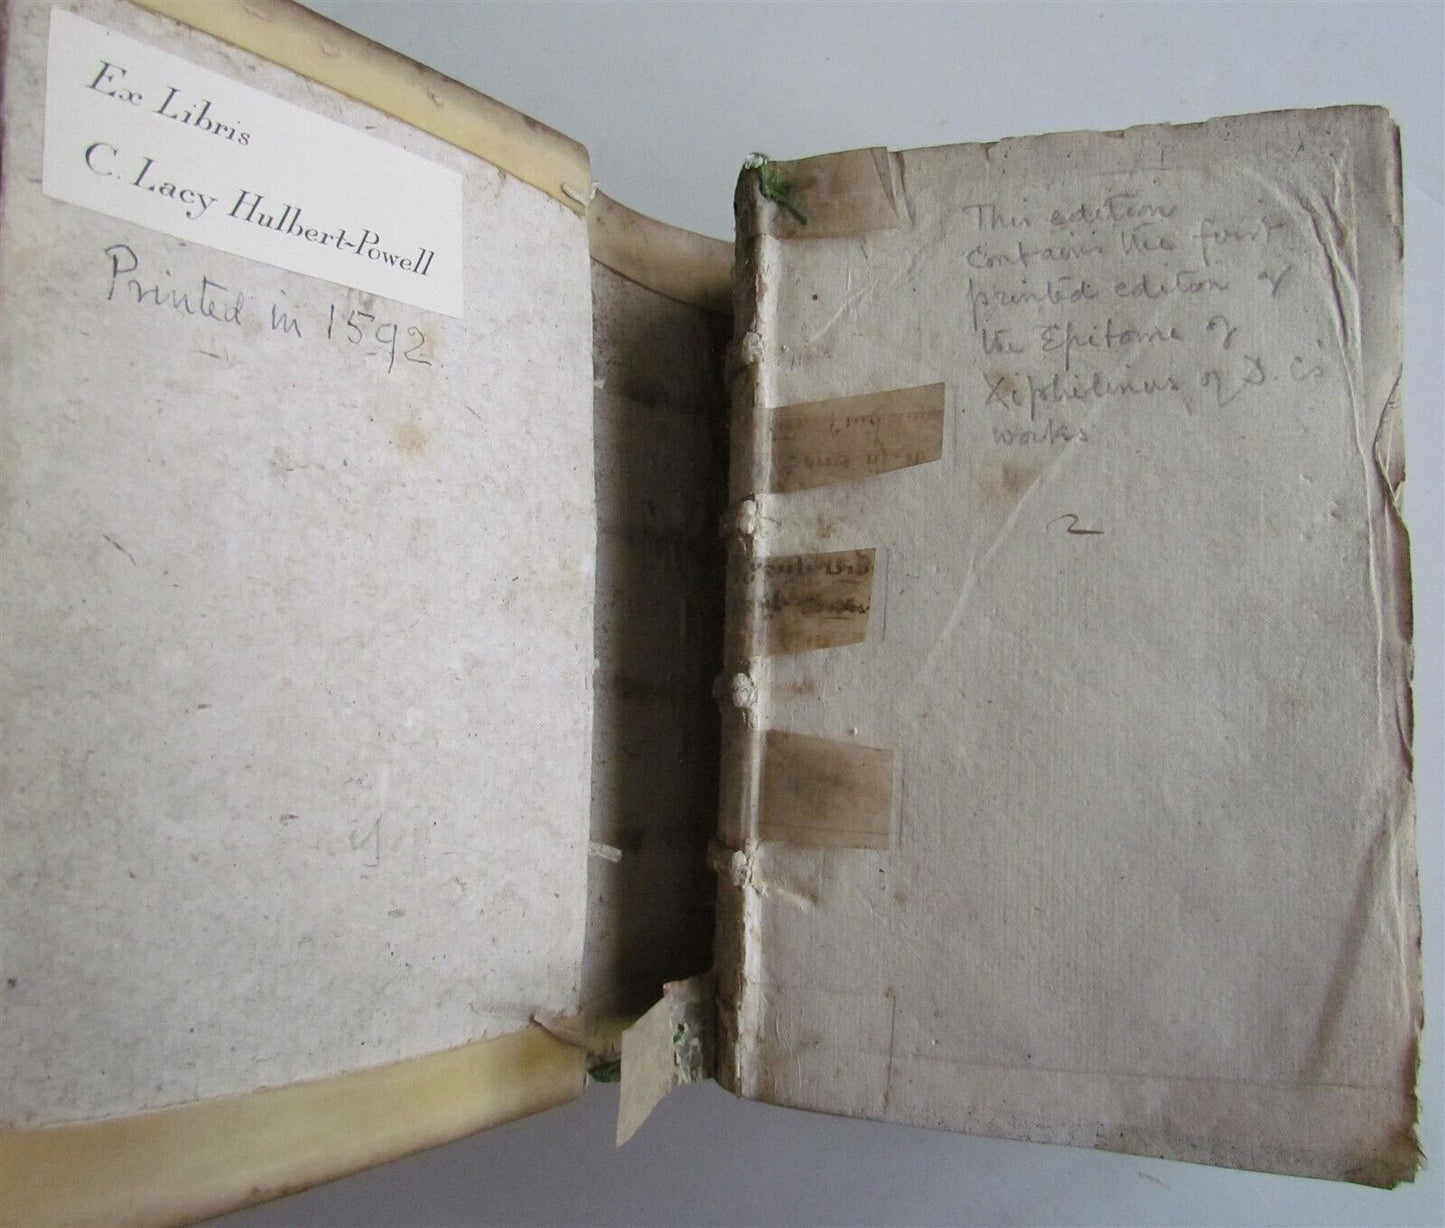 Ex Libris
C. Lacy Hulbert-Powell
Printed in 1592
This edition
contains the first
printed edition of
the Epitome of
Xiphilinus of D. C's
works
2